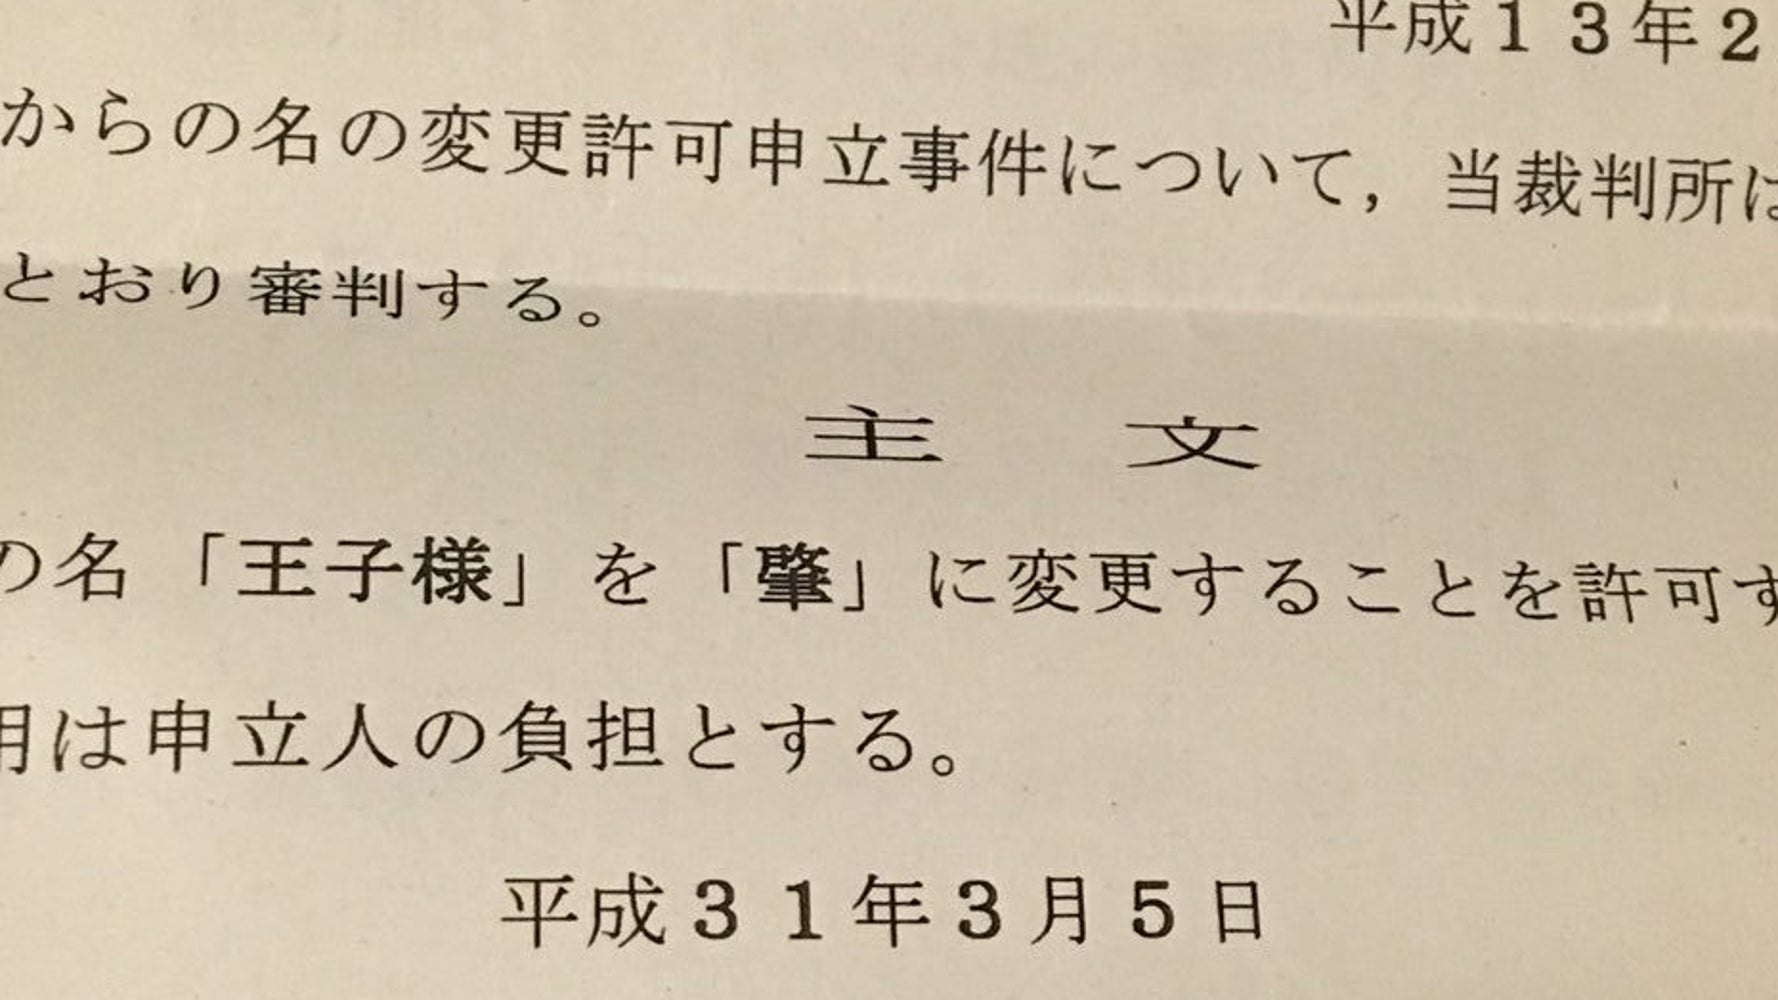 平成13年2
からの名の変更許可申立事件について，当裁判所は
とおり審判する。
主　文
の名「王子様」を「肇」に変更することを許可す
用は申立人の負担とする。
平成31年3月5日